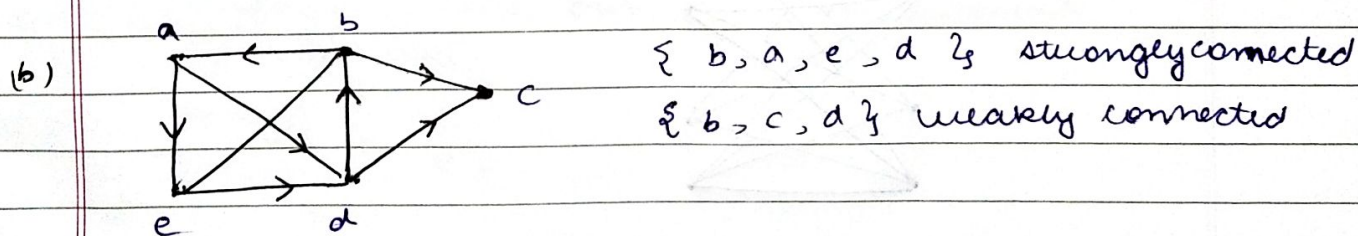 a b
(b) { b, a, e, d } strongly connected
c
{ b, c, d } weakly connected
e d